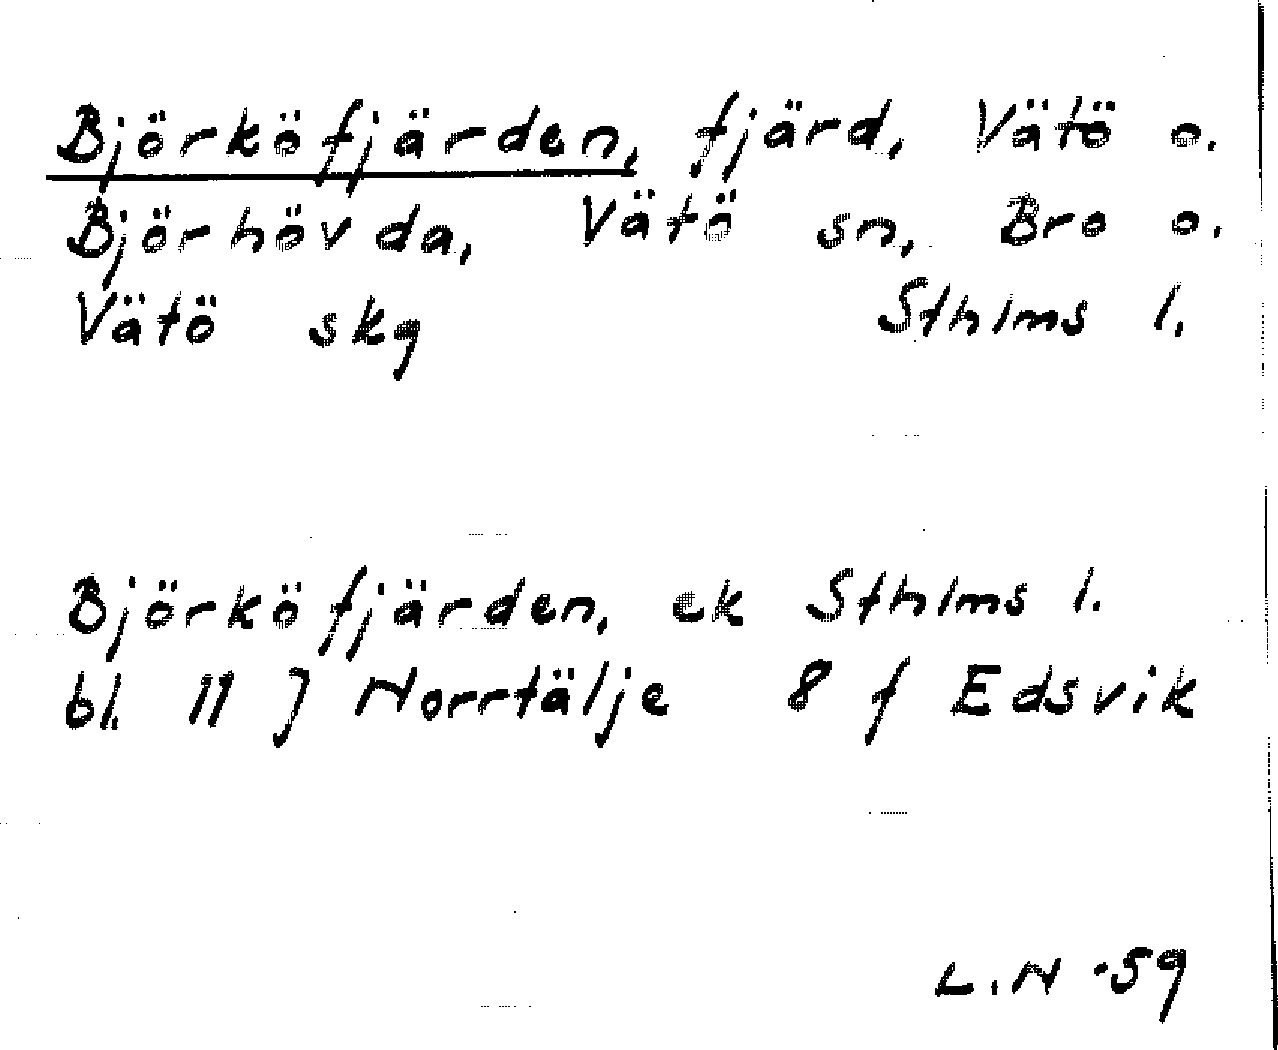 Björköfjärden, fjärd, Vätö o.
Björhövda, Vätö sn, Bro o.
Vätö skg Sthlms l.
Björköfjärden, ek Sthlms l.
bl. 11 J Norrtälje 8 f Edsvik
L.N -59